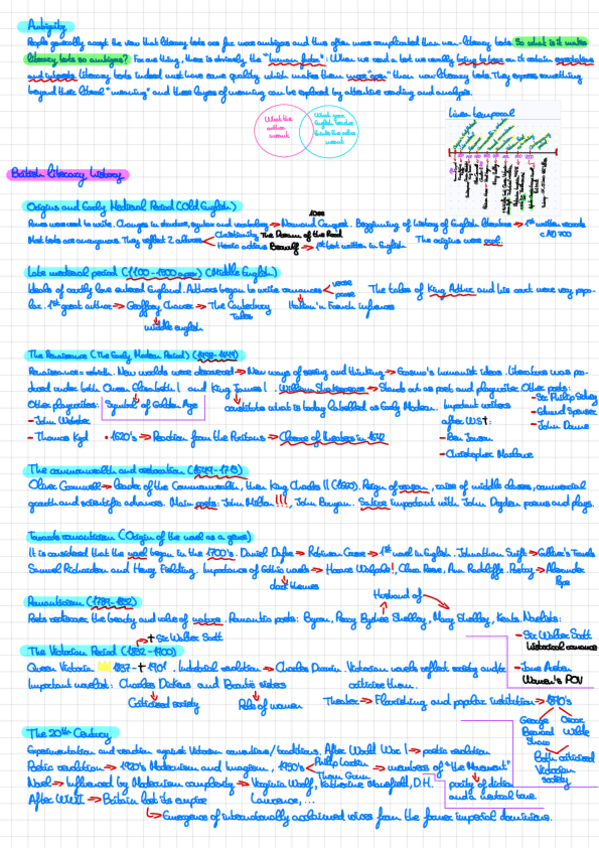 Ambiguity
People generally accept the view that literary texts are far more ambiguous and thus often more complicated than non-literary texts. So what is it makes
literary texts so ambiguous? For one thing, there is obviously the When we read a text we usually bring to it certain expectations
and interests. Literary texts indeed must have some quality which makes them "more open" than non-literary texts. They express something
beyond their literal "meaning" and these layers of meaning can be explored by attentive reading and analysis.
What the author meant
What your English teacher thinks the author meant
Línea temporal
British literary history
Origins and Early Medieval Period (Old English)
1066
Norman Conquest. Beginning of history of English literature → 1st written records
c. AD 700
Most texts are anonymous. They reflect 2 cultures
Christianity The Dream of the Rood
Heroic Beowulf → 1st text written in English
The origins were oral.
Late medieval period (1100-1500 aprox) (Middle English)
Ideals of courtly love entered England. Authors began to write romances
verse
prose
The tales of King Arthur and his court were very popu-
lar. 1st great author → Geoffrey Chaucer → The Canterbury
Tales
Italian & French influences
middle english
The Renaissance (The Early Modern Period)
Renaissance = rebirth. New worlds were discovered → New ways of seeing and thinking → humanist ideas. Literature was pro-
duced under both Queen Elizabeth I and King James I. William Shakespeare → Stands out as poet and playwright. Other poets:
- Sir Philip Sidney
- Edmund Spenser
- John Donne
Other playwrights:
- John Webster
- Thomas Kyd
Symbol of Golden Age
constitute what is today labelled as Early Modern.
Important writers
after WS†:
- Ben Jonson
- Christopher Marlowe
• 1620's → Reaction from the Puritans → Closure of theaters in 1642
The commonwealth and restoration
Oliver Cromwell → leader of the Commonwealth, then King Charles II (1660). Reign of reason, raise of middle classes, commercial
growth and scientific advances. Main poets: John Milton !!!, John Bunyan. Satire important with John Dryden poems and plays.
Towards romanticism (Origin of the novel as a genre)
It is considered that the novel began in the 1700's. Daniel Defoe → Robinson Crusoe → 1st novel in English. Johnathan Swift → Gulliver's Travels
Samuel Richardson and Henry Fielding. Importance of Gothic novels → Horace Walpole!, Clara Reeve, Ann Radcliffe. Poetry → Alexander
Pope
dark themes
Romanticism (1789-1832)
Husband of
Poets rediscover the beauty and value of nature. Romantic poets: Byron, Percy Bysshe Shelley, Mary Shelley, Keats. Novelists:
- Sir Walter Scott
Historical romance
- Jane Austen
Women's POV
† Sir Walter Scott
The Victorian Period (1832-1900)
Queen Victoria 1837-† 1901. Industrial revolution → Charles Darwin. Victorian novels reflect society and/or
criticize them.
Important novelist: Charles Dickens and Brontë sisters
Criticized society
Role of women
Theater → Flourishing and popular institution → 1890's
George
Bernard
Shaw
Oscar
Wilde
Both criticized
Victorian
society
The 20th Century
Experimentation and reaction against Victorian conventions/traditions. After World War I → poetic revolution
Poetic revolution → 1920's Modernism and Imagism, 1950's
Philip Larkin
Thom Gunn
→ members of "the Movement"
purity of diction
and a neutral tone
Novel → Influenced by Modernism complexity → Virginia Woolf, Katherine Mansfield, D.H.
Lawrence, ...
After WWII → Britain lost its empire
Emergence of internationally acclaimed voices from the former imperial dominions.